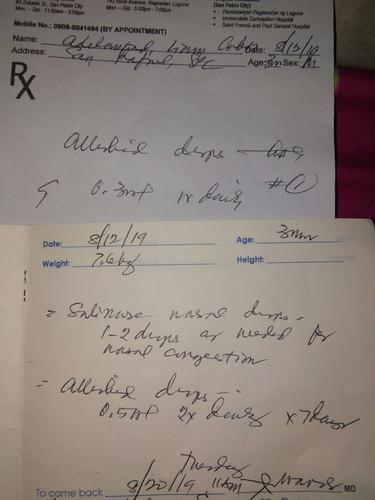 #3 Zulueta St, San Pablo City
Mon - Sat : 11:00am - 3:00pm
Mon - Sat : 5:00pm - 7:00pm
(San Pablo City)
• Pantalangan Pagamutan ng Laguna
• Immaculate Conception Hospital
• Saint Francis and Paul General Hospital
Mobile No.: 0908-8841494 (BY APPOINTMENT)
Name: Date: 8/12/19
Address: San Rafael, SPC Age: 3m Sex: M
Rx
Allerkid drops
0.3ml 1x daily #1
Date: 8/12/19 Age: 3mo
Weight: 7.6kg Height:
= Salinase nasal drops -
1-2 drops as needed for
nasal congestion
= Allerkid drops -
0.5ml 2x daily x 7 days
Tuesday
To come back 8/20/19 11AM MD